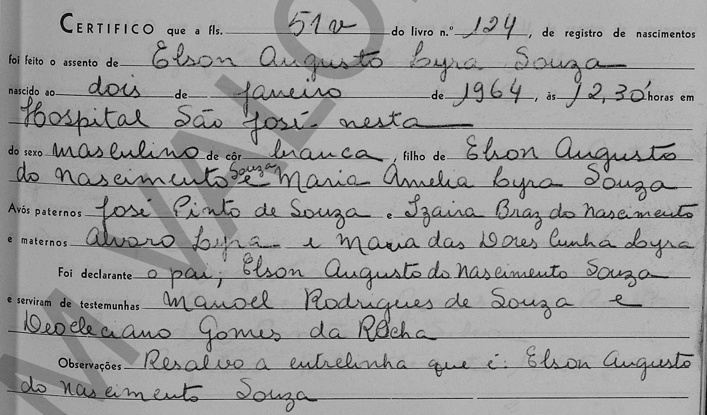 CERTIFICO que a fls. 51v do livro n.º 124, de registro de nascimentos
foi feito o assento de Elson Augusto Lyra Souza
nascido ao dois de janeiro de 1964, às 12,30 horas em
Hospital São José nesta
do sexo masculino de côr branca, filho de Elson Augusto
do Nascimento Souza e Maria Amelia Lyra Souza
Avós paternos José Pinto de Souza e Izaira Braz do Nascimento
e maternos Alvaro Lyra e Maria das Dores Cunha Lyra
Foi declarante o pai, Elson Augusto do Nascimento Souza
e serviram de testemunhas Manoel Rodrigues de Souza e
Deocleciano Gomes da Rocha
Observações Resalvo a entrelinha que é: Elson Augusto
do Nascimento Souza